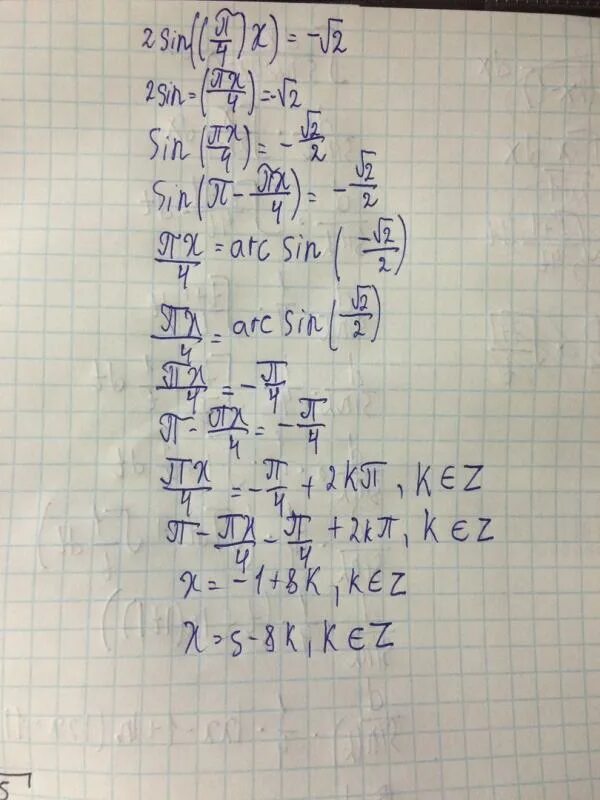 2sin((π/4)x) = -√2
2sin=(πx/4)=-√2
Sin(πx/4) = -√2/2
Sin(π - πx/4) = -√2/2
πx/4 = arc sin(-√2/2)
πx/4 = arc sin(-√2/2)
πx/4 = -π/4
π - πx/4 = -π/4
πx/4 = -π/4 + 2kπ, k ∈ Z
π - πx/4 - π/4 + 2kπ, k ∈ Z
x = -1+8k, k ∈ Z
x = 5-8k, k ∈ Z
5